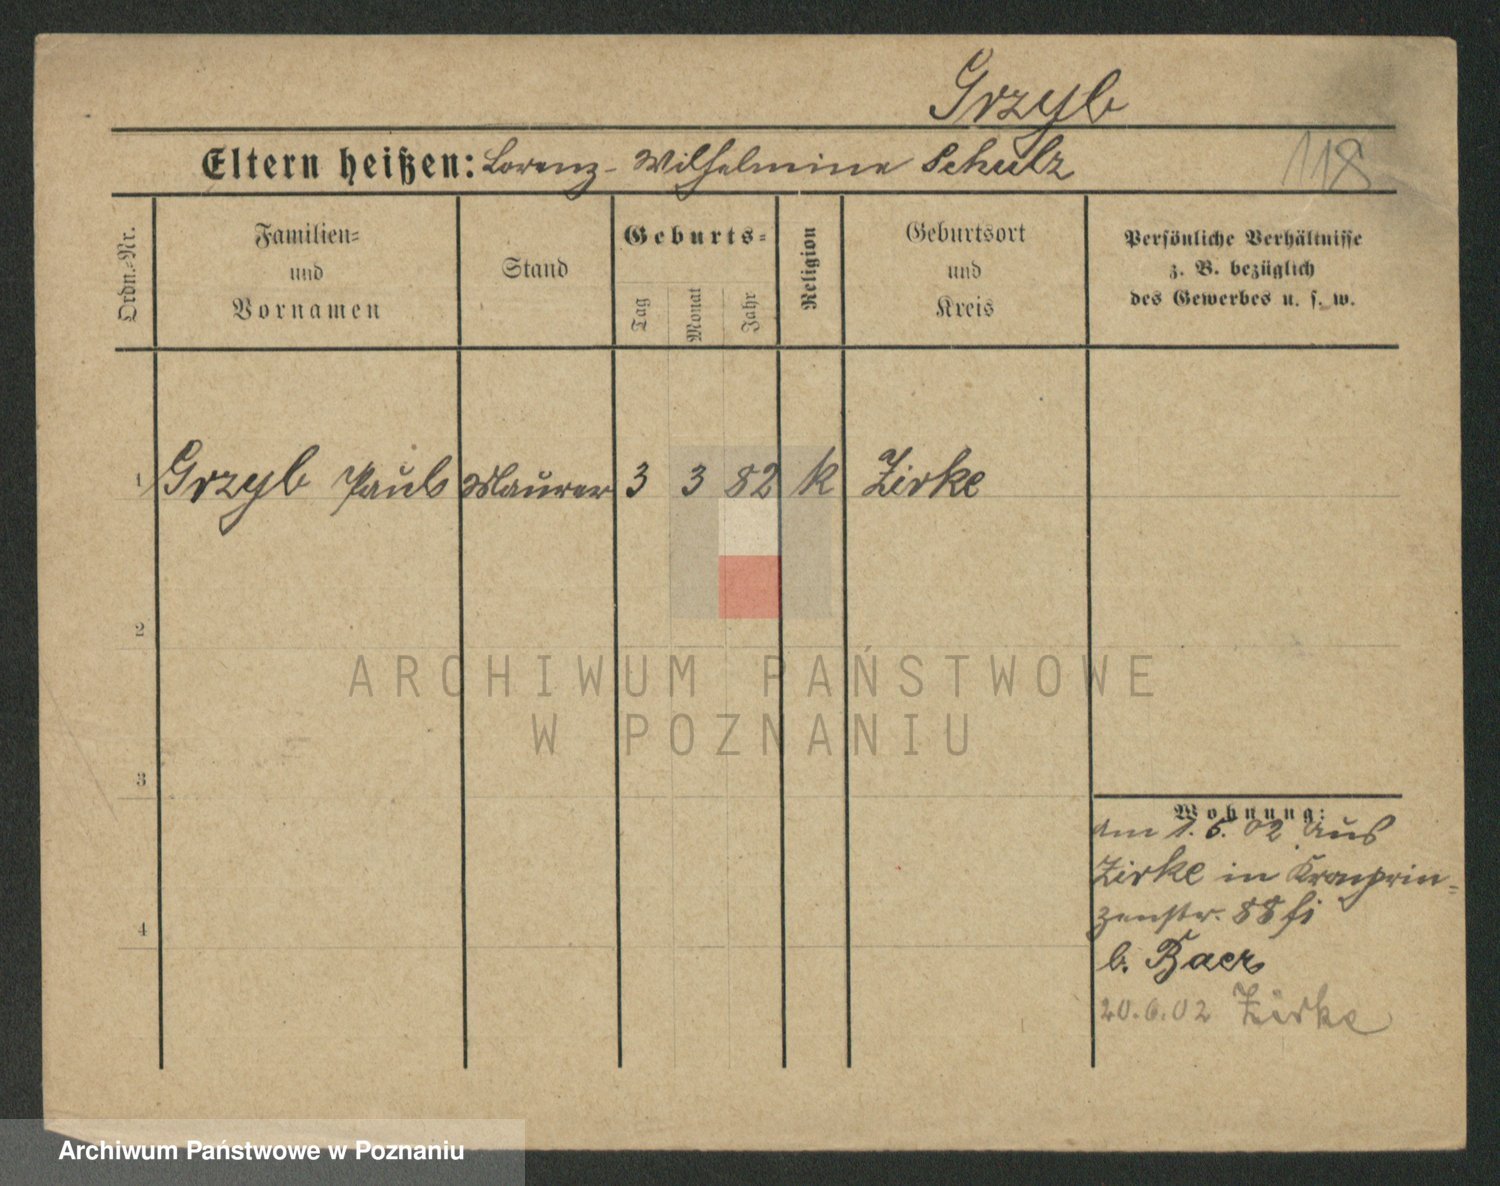 Grzyb
Eltern heißen: Lorenz - Wilhelmine Schulz
118
Ordn.-Nr.
Familien-
und
Vornamen
Stand
Geburts-
Tag
Monat
Jahr
Religion
Geburtsort
und
Kreis
Persönliche Verhältnisse
z. B. bezüglich
des Gewerbes u. s. w.
1 Grzyb Paul Maurer 3 3 82 k Zirke
2
ARCHIWUM PAŃSTWOWE
W POZNANIU
3
Wohnung:
am 1. 6. 02 aus
Zirke in Kronprin-
zenstr. 88
b. Baer
4
20.6.02 Zirke
Archiwum Państwowe w Poznaniu